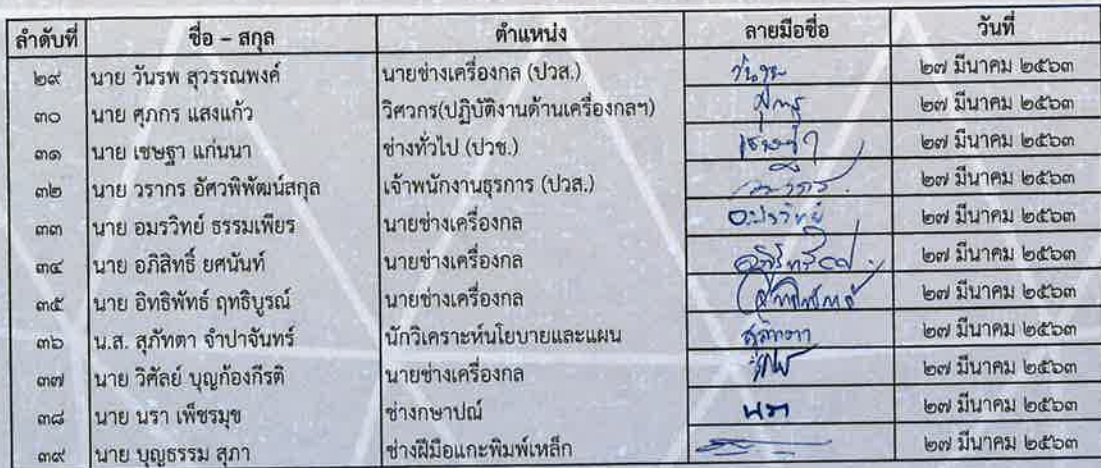 ลำดับที่ ชื่อ – สกุล ตำแหน่ง ลายมือชื่อ วันที่
๒๙ นาย วันรพ สุวรรณพงค์ นายช่างเครื่องกล (ปวส.) ๒๗ มีนาคม ๒๕๖๓
๓๐ นาย ศุภกร แสงแก้ว วิศวกร(ปฏิบัติงานด้านเครื่องกลฯ) ๒๗ มีนาคม ๒๕๖๓
๓๑ นาย เชษฐา แก่นนา ช่างทั่วไป (ปวช.) ๒๗ มีนาคม ๒๕๖๓
๓๒ นาย วรากร อัศวพิพัฒน์สกุล เจ้าพนักงานธุรการ (ปวส.) ๒๗ มีนาคม ๒๕๖๓
๓๓ นาย อมรวิทย์ ธรรมเพียร นายช่างเครื่องกล อมรวิทย์ ๒๗ มีนาคม ๒๕๖๓
๓๔ นาย อภิสิทธิ์ ยศนันท์ นายช่างเครื่องกล ๒๗ มีนาคม ๒๕๖๓
๓๕ นาย อิทธิพัทธ์ ฤทธิบูรณ์ นายช่างเครื่องกล ๒๗ มีนาคม ๒๕๖๓
๓๖ น.ส. สุภัทตา จำปาจันทร์ นักวิเคราะห์นโยบายและแผน สุภัทตา ๒๗ มีนาคม ๒๕๖๓
๓๗ นาย วิศัลย์ บุญก้องกีรติ นายช่างเครื่องกล ๒๗ มีนาคม ๒๕๖๓
๓๘ นาย นรา เพ็ชรมุข ช่างกษาปณ์ นรา ๒๗ มีนาคม ๒๕๖๓
๓๙ นาย บุญธรรม สุภา ช่างฝีมือแกะพิมพ์เหล็ก ๒๗ มีนาคม ๒๕๖๓